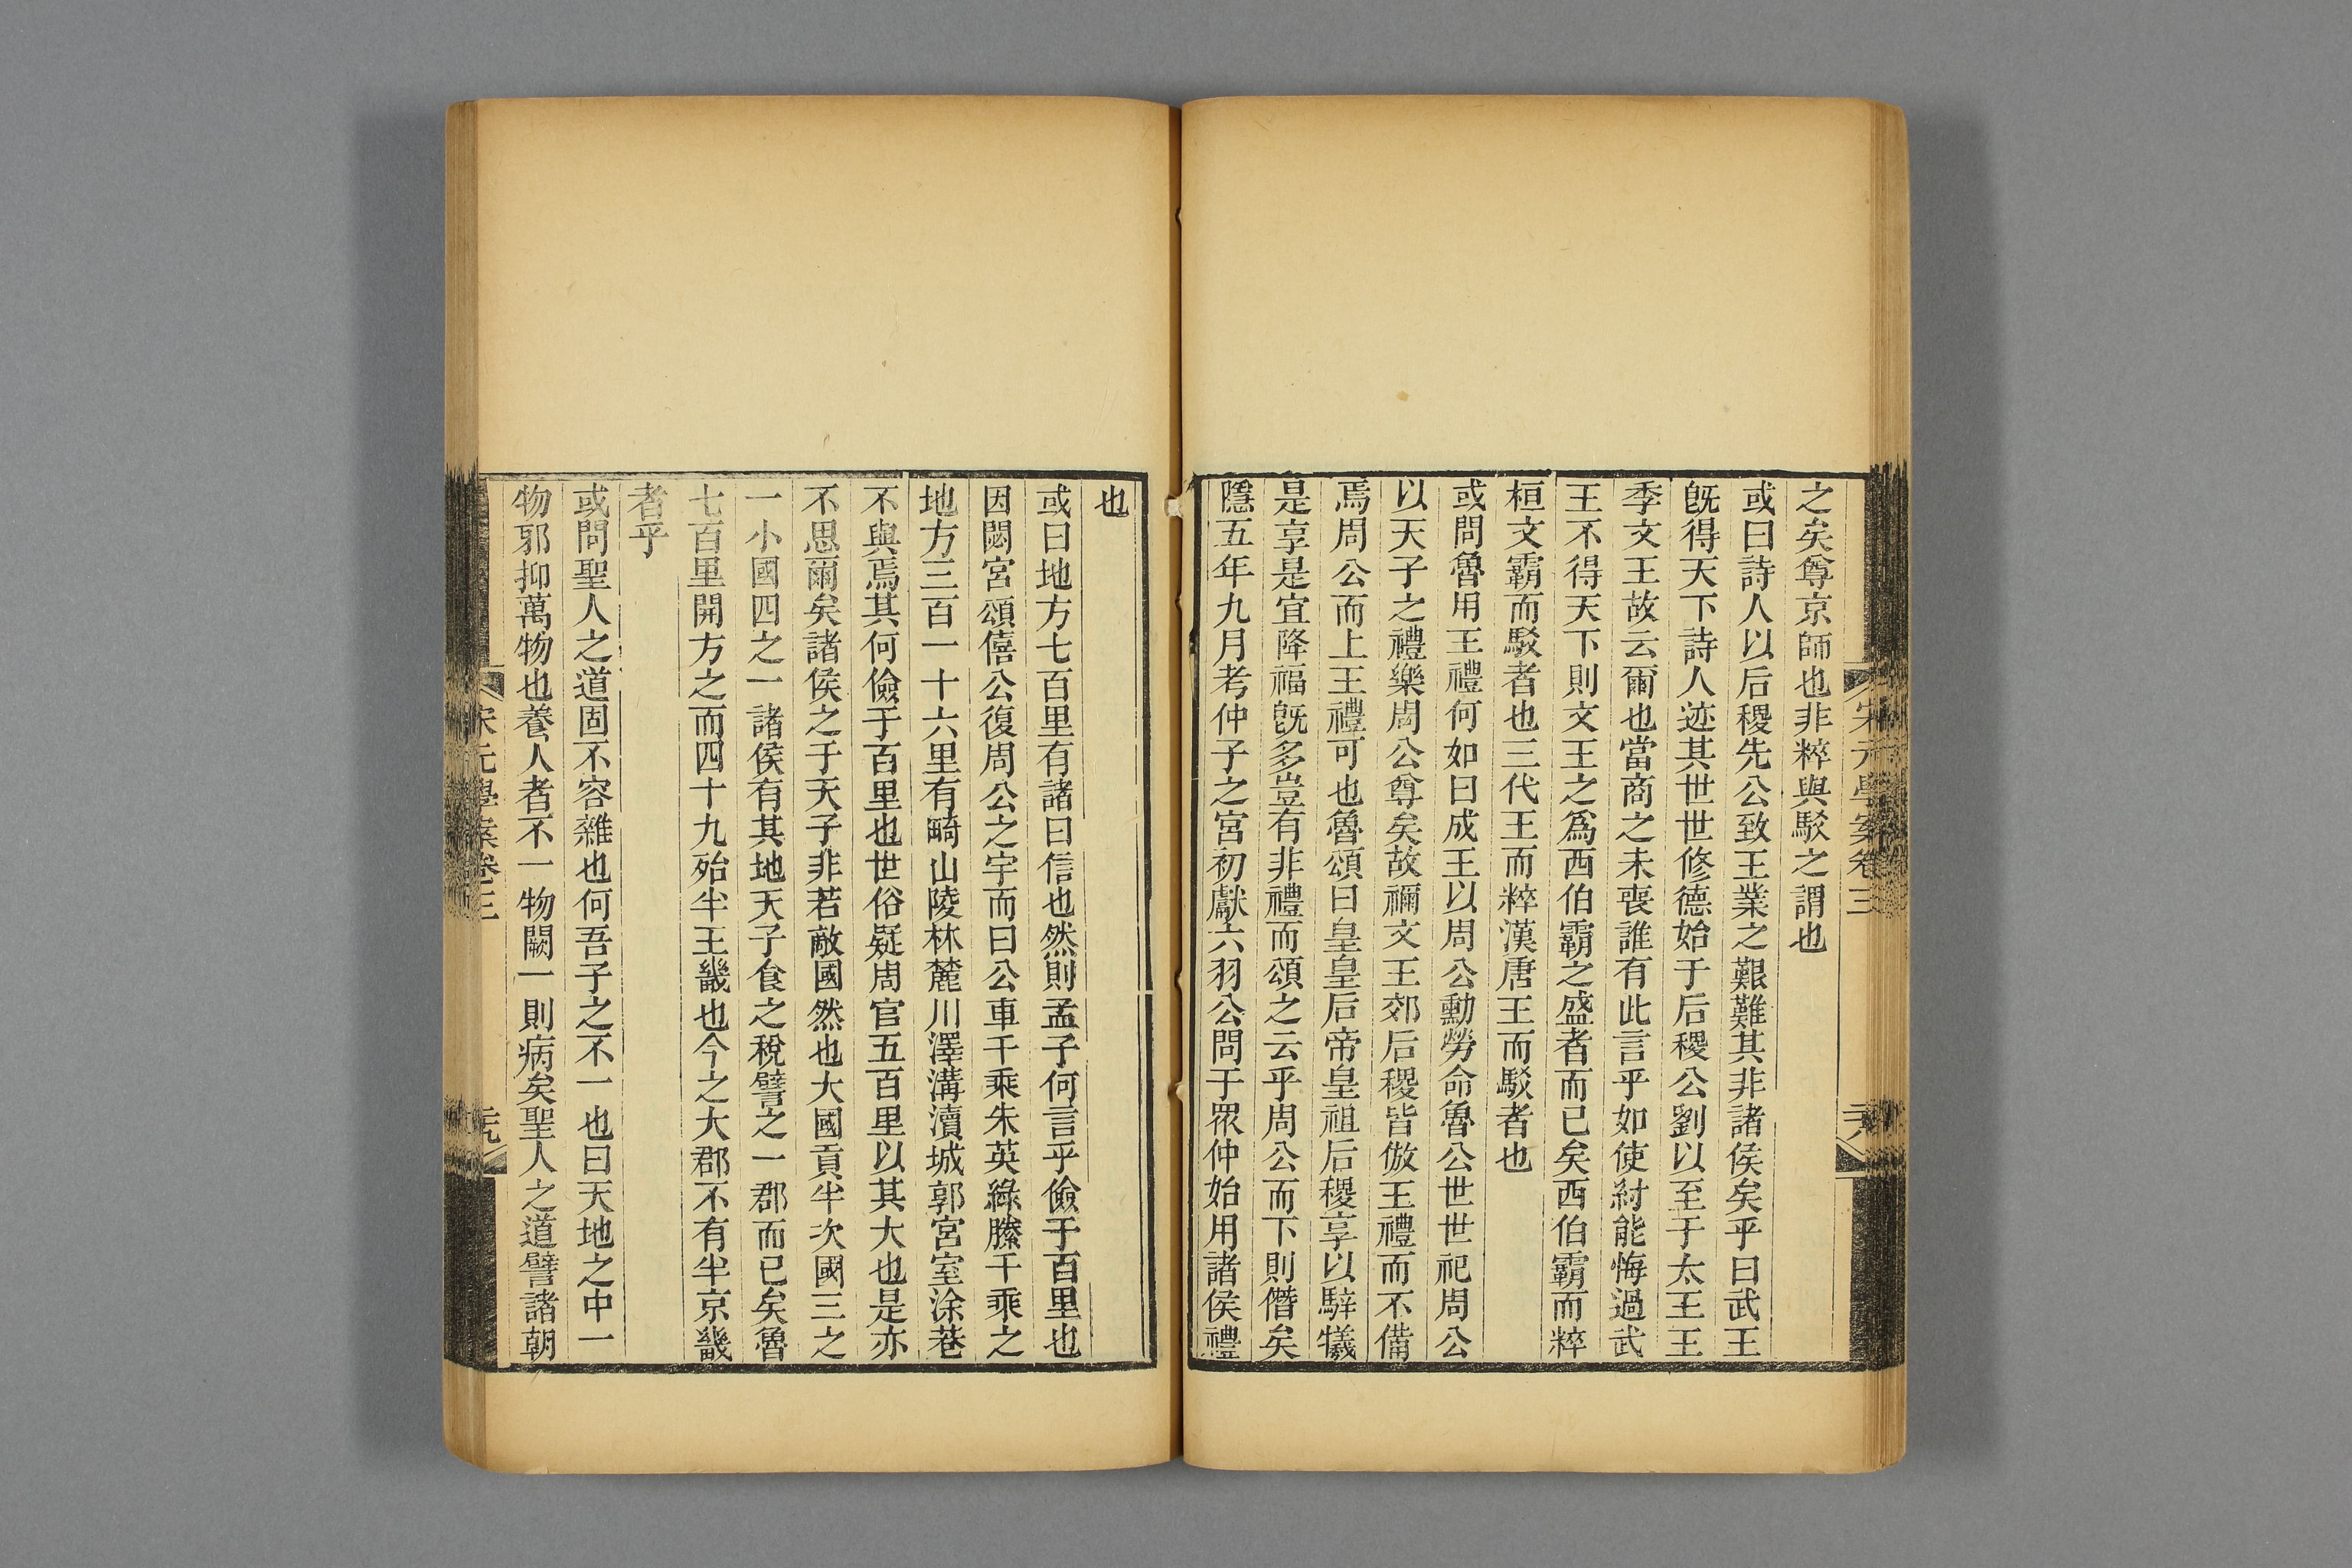 宋元學案卷三
六
之矣尊京師也非粹與駁之謂也
或曰詩人以后稷先公致王業之艱難其非諸侯矣乎曰武王
旣得天下詩人迹其世世修德始于后稷公劉以至于太王王
季文王故云爾也當商之未喪誰有此言乎如使紂能悔過武
王不得天下則文王之爲西伯霸之盛者而已矣西伯霸而粹
桓文霸而駁者也三代王而粹漢唐王而駁者也
或問魯用王禮何如曰成王以周公勳勞命魯公世世祀周公
以天子之禮樂周公尊矣故禰文王郊后稷皆倣王禮而不備
焉周公而上王禮可也魯頌曰皇皇后帝皇祖后稷享以騂犧
是享是宜降福旣多豈有非禮而頌之云乎周公而下則僭矣
隱五年九月考仲子之宮初獻六羽公問于眾仲始用諸侯禮
也
或曰地方七百里有諸曰信也然則孟子何言乎儉于百里也
因閟宮頌僖公復周公之宇而曰公車千乘朱英綠縢千乘之
地方三百一十六里有畸山陵林麓川澤溝瀆城郭宮室涂巷
不與焉其何儉于百里也世俗疑周官五百里以其大也是亦
不思爾矣諸侯之于天子非若敵國然也大國貢半次國三之
一小國四之一諸侯有其地天子食之稅譬之一郡而已矣魯
七百里開方之而四十九殆半王畿也今之大郡不有半京畿
者乎
或問聖人之道固不容雜也何吾子之不一也曰天地之中一
物邪抑萬物也養人者不一物闕一則病矣聖人之道譬諸朝
宋元學案卷三